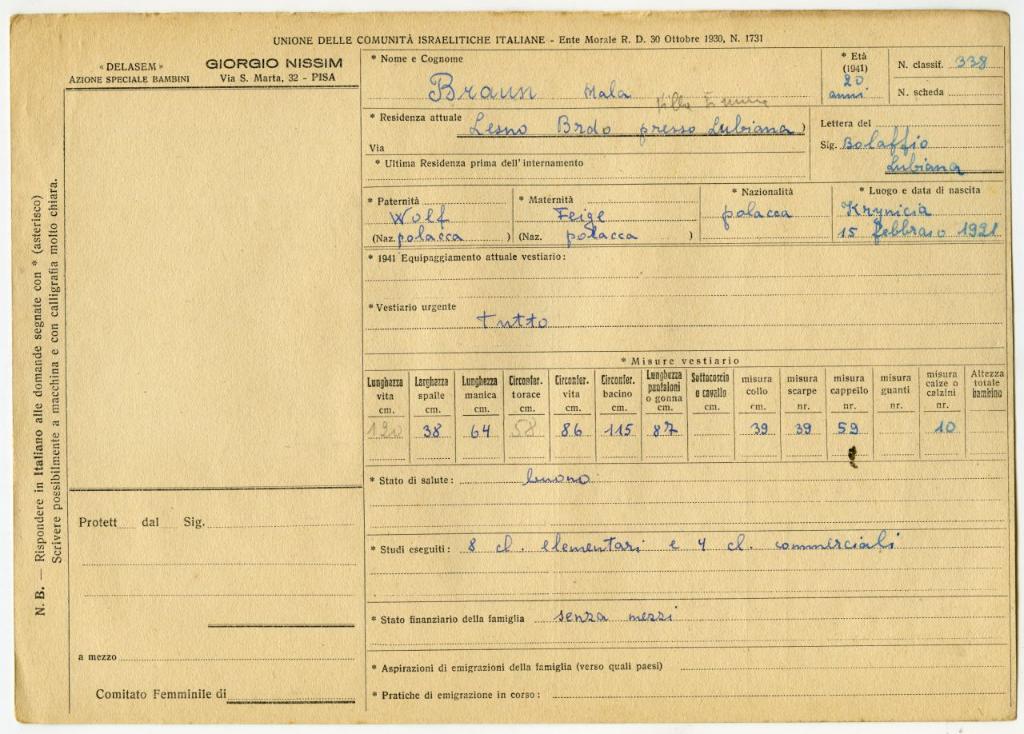 UNIONE DELLE COMUNITÀ ISRAELITICHE ITALIANE - Ente Morale R. D. 30 Ottobre 1930, N. 1731
« DELASEM »
AZIONE SPECIALE BAMBINI
GIORGIO NISSIM
Via S. Marta, 32 - PISA
N. B. — Rispondere in Italiano alle domande segnate con * (asterisco)
Scrivere possibilmente a macchina e con calligrafia molto chiara.
* Nome e Cognome
Braun Mala
Villa
* Età
(1941)
20
anni
N. classif. 338
N. scheda
* Residenza attuale Lesno Brdo presso Lubiana)
Via
* Ultima Residenza prima dell'internamento
Lettera del
Sig. Bolaffio
Lubiana
* Paternità
Wolf
(Naz. polacca )
* Maternità
Feige
(Naz. polacca )
* Nazionalità
polacca
* Luogo e data di nascita
Krynicia
15 febbraio 1921
* 1941 Equipaggiamento attuale vestiario:
* Vestiario urgente
tutto
* Misure vestiario
Lunghezza vita cm. 120
Larghezza spalle cm. 38
Lunghezza manica cm. 64
Circonfer. torace cm. 58
Circonfer. vita cm. 86
Circonfer. bacino cm. 115
Lunghezza pantaloni o gonna cm. 87
Sottocoscia o cavallo cm.
misura collo cm. 39
misura scarpe nr. 39
misura cappello nr. 59
misura guanti nr.
misura calze o calzini nr. 10
Altezza totale bambino
* Stato di salute: buono
* Studi eseguiti: 8 cl. elementari e 4 cl. commerciali
* Stato finanziario della famiglia senza mezzi
* Aspirazioni di emigrazioni della famiglia (verso quali paesi)
* Pratiche di emigrazione in corso:
Protett dal Sig.
a mezzo
Comitato Femminile di